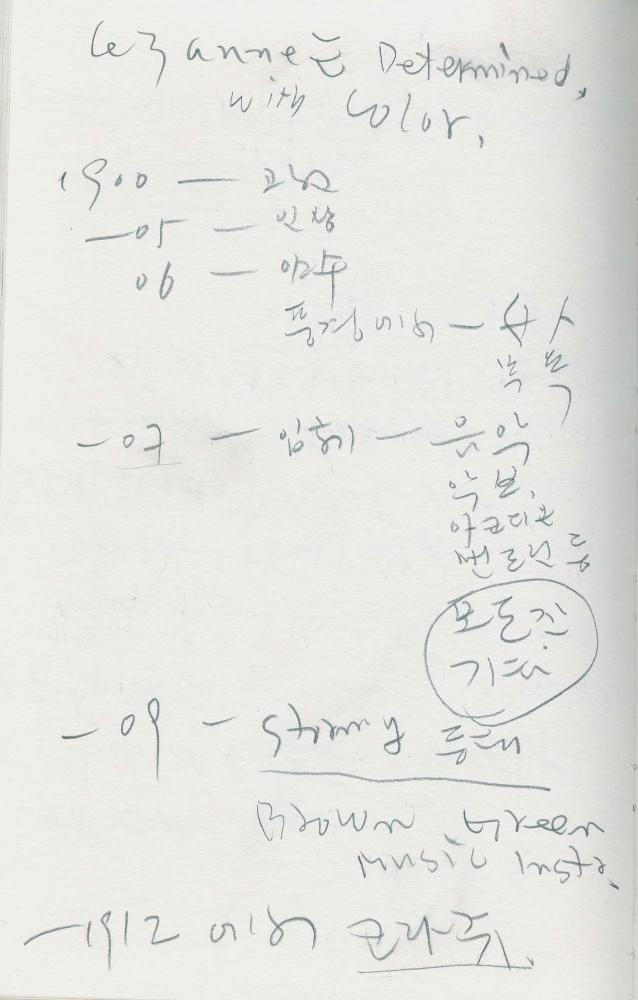 Cezanne는 Determined,
with Color,
1900 — 고전
— 05 — 인상
06 — 야수
풍경에서 —
— 07 — 입체 — 음악
악보,
아코디온
맨도린 등
모든
기타
— 09 — 등대
Brown Green
Music Instr.
— 1912 에서 코라쥬.